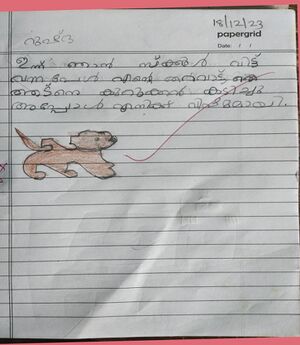 18/12/23
papergrid
Date: / /
ഇന്ന് ഞാൻ സ്കൂൾ വിട്ട്
വന്നപ്പോൾ എന്റെ
കുറുക്കൻ കടിച്ചു
അപ്പോൾ എനിക്ക് വിഷമമായി.